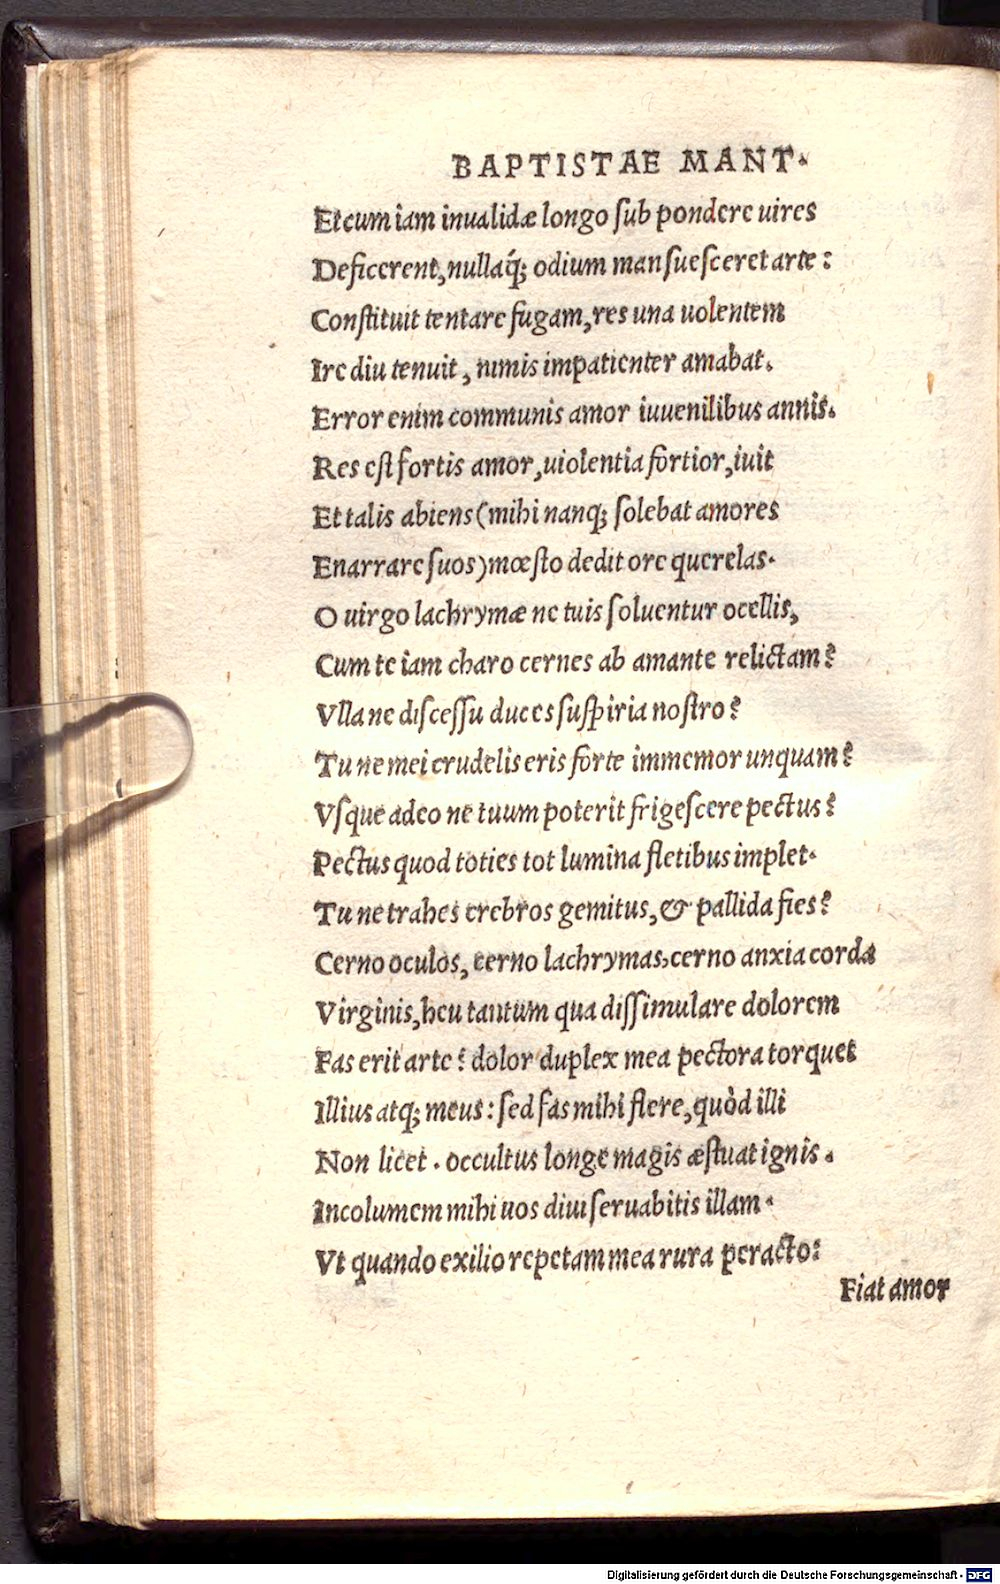 BAPTISTAE MANT.
Et cum iam inualidæ longo ſub pondere uires
Deficerent, nullaq́; odium manſueſceret arte:
Conſtituit tentare fugam, res una uolentem
Ire diu tenuit, nimis impatienter amabat.
Error enim communis amor iuuenilibus annis.
Res eſt fortis amor, uiolentia fortior, iuit
Et talis abiens (mihi nanq; ſolebat amores
Enarrare ſuos) mœſto dedit ore querelas.
O uirgo lachrymæ ne tuis ſoluentur ocellis,
Cum te iam charo cernes ab amante relictam?
Vlla ne diſceſſu duces ſuſpiria noſtro?
Tu ne mei crudelis eris forte immemor unquam?
Vſque adeo ne tuum poterit frigeſcere pectus?
Pectus quod toties tot lumina fletibus implet.
Tu ne trahes crebros gemitus, & pallida fies?
Cerno oculos, cerno lachrymas, cerno anxia corda
Virginis, heu tantum qua diſſimulare dolorem
Fas erit arte? dolor duplex mea pectora torquet
Illius atq; meus: ſed fas mihi flere, quòd illi
Non licet. occultus longe magis æſtuat ignis.
Incolumem mihi uos diui ſeruabitis illam.
Vt quando exilio repetam mea rura peracto:
Fiat amor
Digitalisierung gefördert durch die Deutsche Forschungsgemeinschaft - DFG